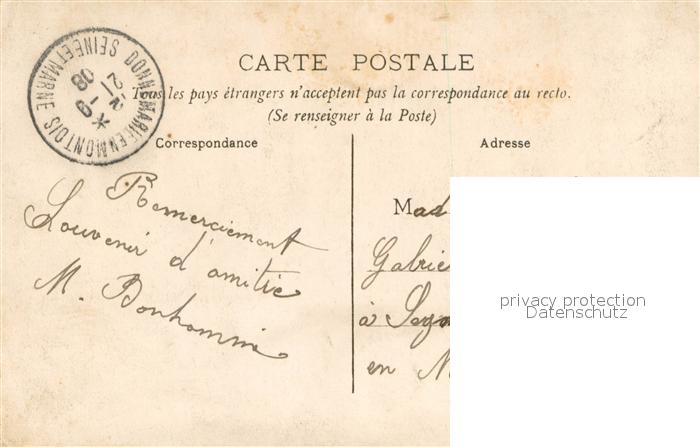 CARTE POSTALE
Tous les pays étrangers n'acceptent pas la correspondance au recto.
(Se renseigner à la Poste)
Correspondance
Adresse
DONNEMARIE EN MONTOIS SEINE ET MARNE
21
08
Remerciement
Souvenir d'amitié
M. Bonhomme
Mad
Gabrie
à
en
privacy protection
Datenschutz